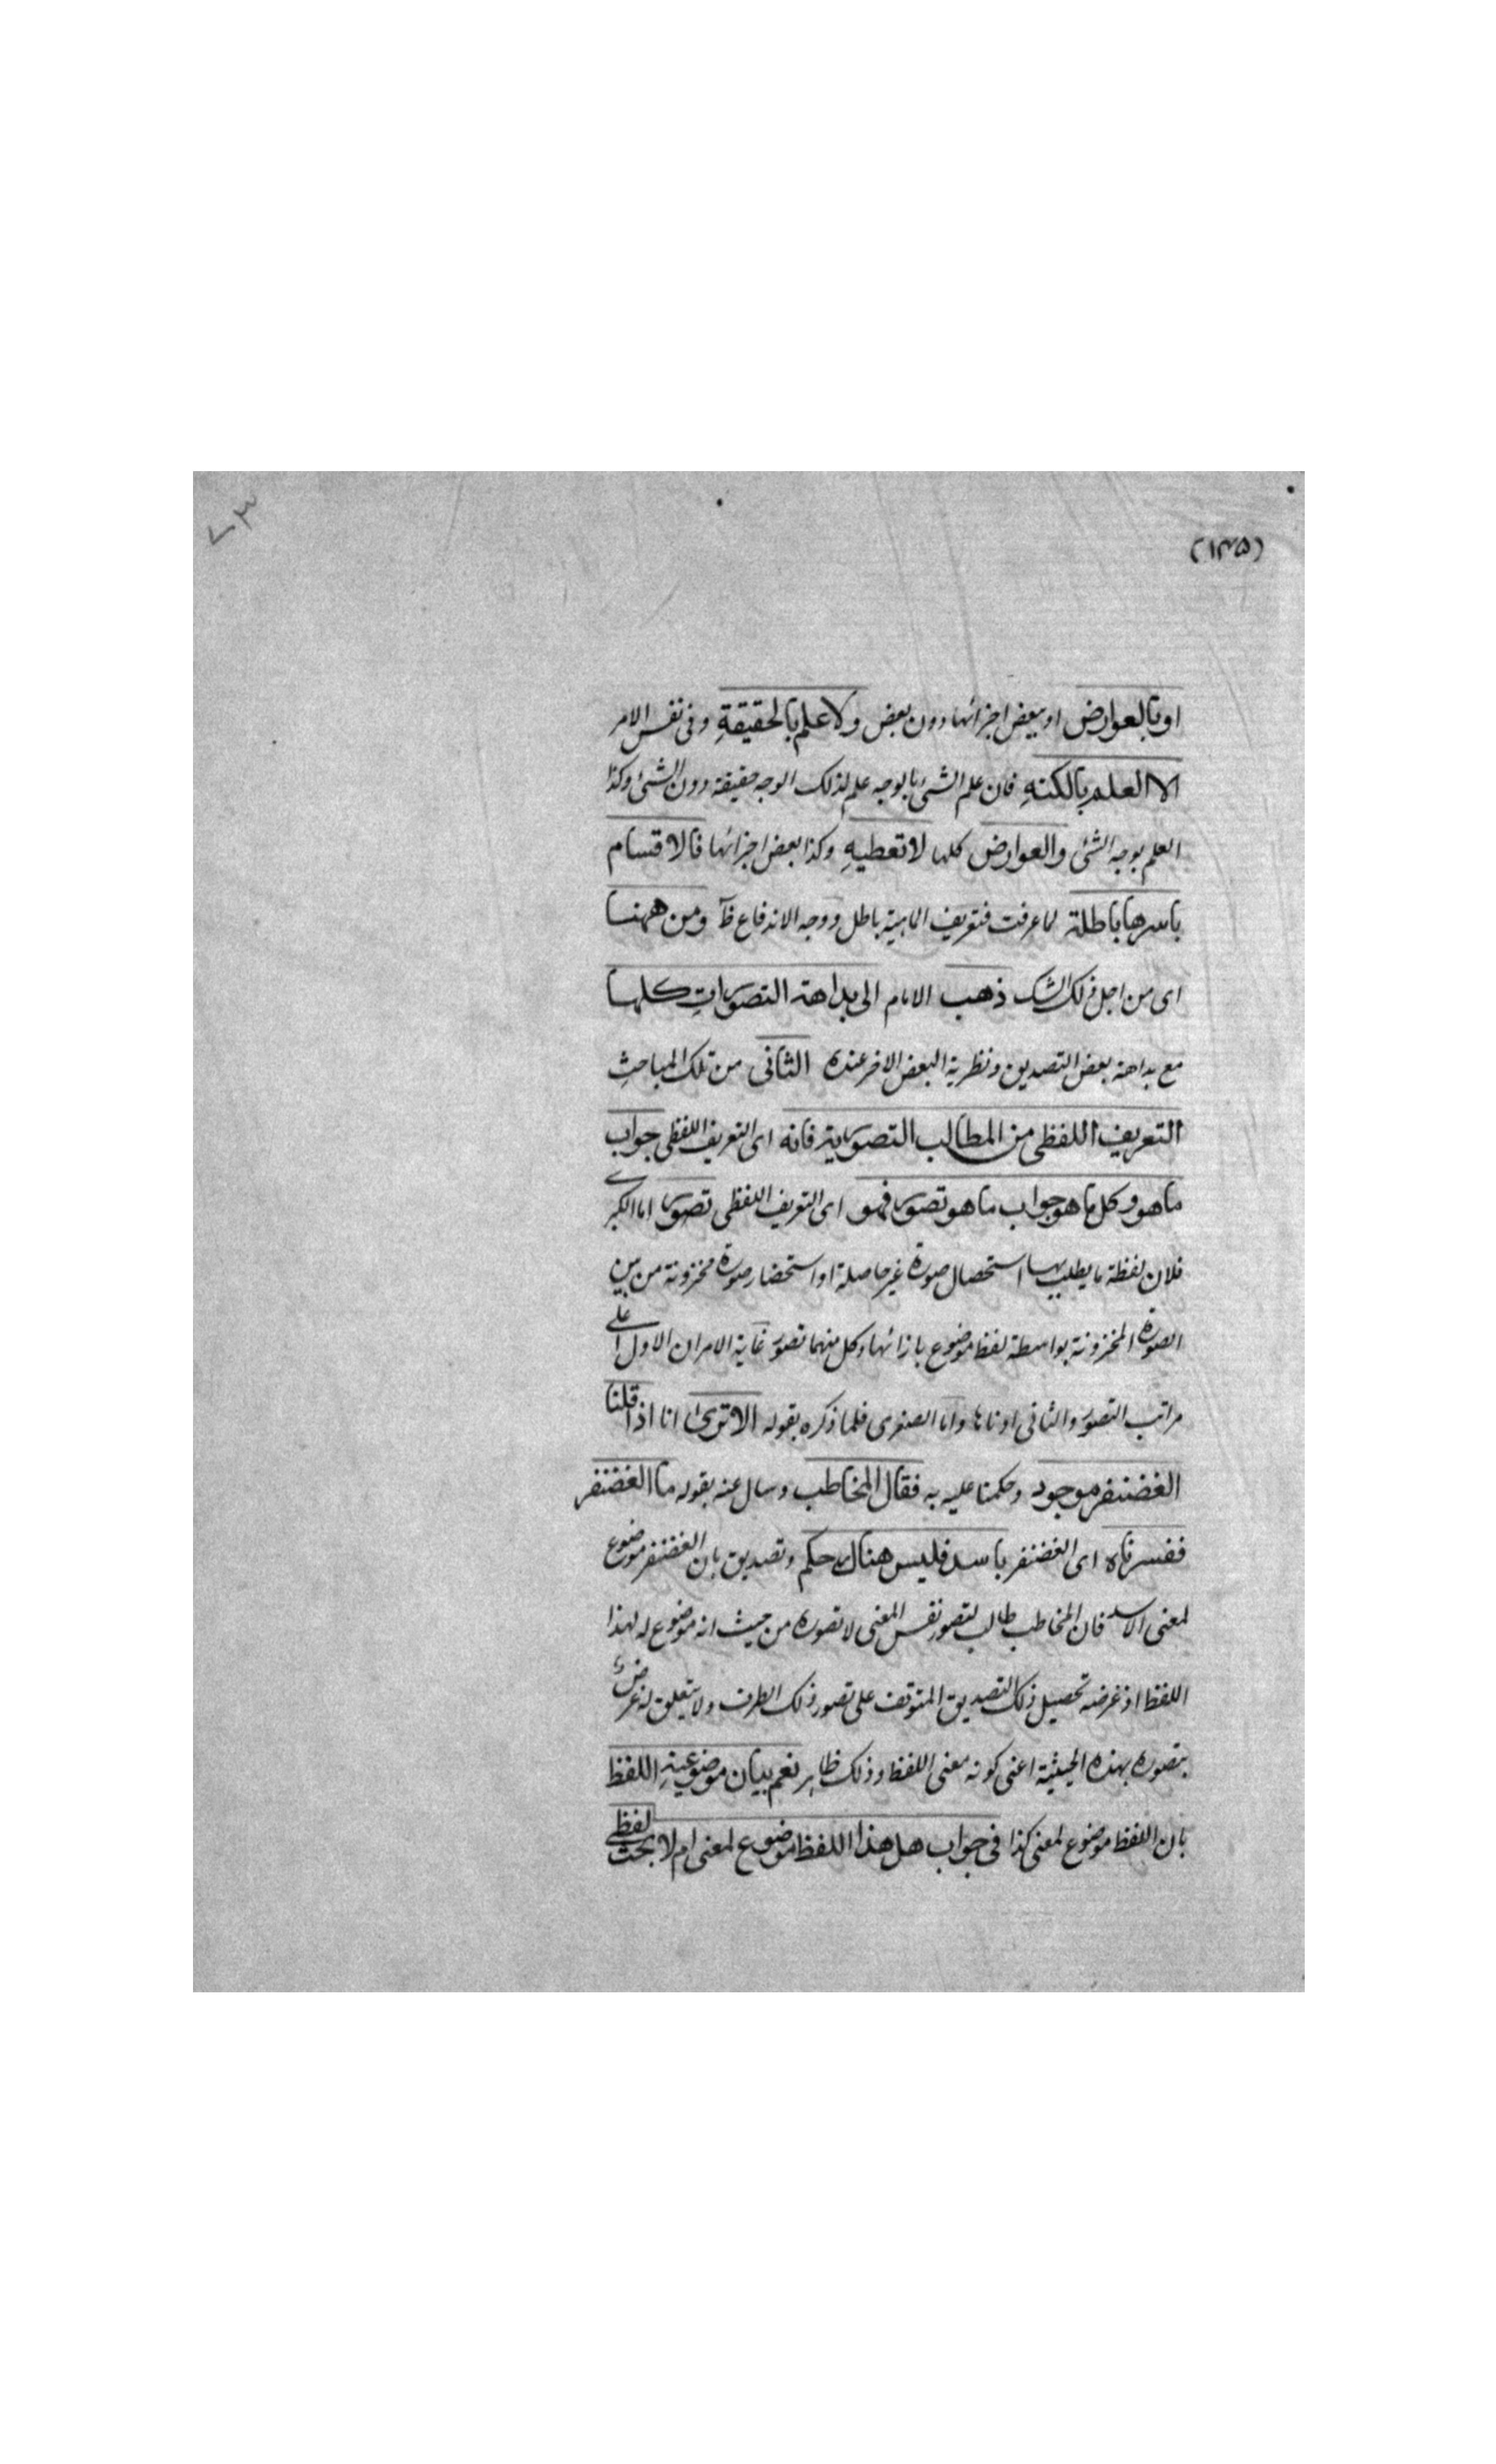 ٧٣
(١٣٥)
او بالعوارض او ببعض اجزائها دون بعض ولا علم بالحقيقةِ وفى نفس الامر
الا العلم بالكنهِ فان علم الشئ بالوجه علم لذلك الوجه حقيقة دون الشئ وكذا
العلم بوجه الشئ والعوارض كلها لا تعطيهِ وكذا بعض اجزائها فالاقسام
باسرها باطلة لما عرفت فتعريف الماهية باطل ووجه الاندفاع ظآ ومن ههنا
اى من اجل ذلك الشك ذهب الامام الى بداهة التصوراتِ كلها
مع بداهة بعض التصديق ونظرية البعض الاخر عنده الثانى من تلك المباحثِ
التعريف اللفظى من المطالب التصورية فانه اى التعريف اللفظى جواب
ما هو وكل ما هو جواب ما هو تصور فهو اى التعريف اللفظى تصور اما الكبرے
فلان لفظة ما يطلب بها استحصال صورة غير حاصلة او استحضار صورة مخزونة من بين
الصورة المخزونة بواسطة لفظ موضوع بازائها وكل منهما تصور غاية الامر ان الاول اعلے
مراتب التصور والثانى ادناها واما الصغرى فلما ذكره بقوله الا ترىٰ انا اذا قلنا
الغضنفر موجود وحكمنا عليه به فقال المخاطب وسال عنه بقوله ما الغضنفر
ففسرناه اى الغضنفر باسد فليس هناك حكم وتصديق بان الغضنفر موضوع
لمعنى الاسد فان المخاطب طالب لتصور نفس المعنى لا تصوره من حيث انه موضوع له لهذا
اللفظ اذ غرضه تحصيل ذلك التصديق المتوقف على تصور ذلك الطرف ولا يتعلق له غرض
بتصوره بهذه الحيثية اعنى كونه معنى اللفظ وذلك ظاهر نعم بيان موضوعيةِ اللفظ
بان اللفظ موضوع لمعنى كذا فى جواب هل هذا اللفظ موضوع لمعنى ام لا بحث لفظے